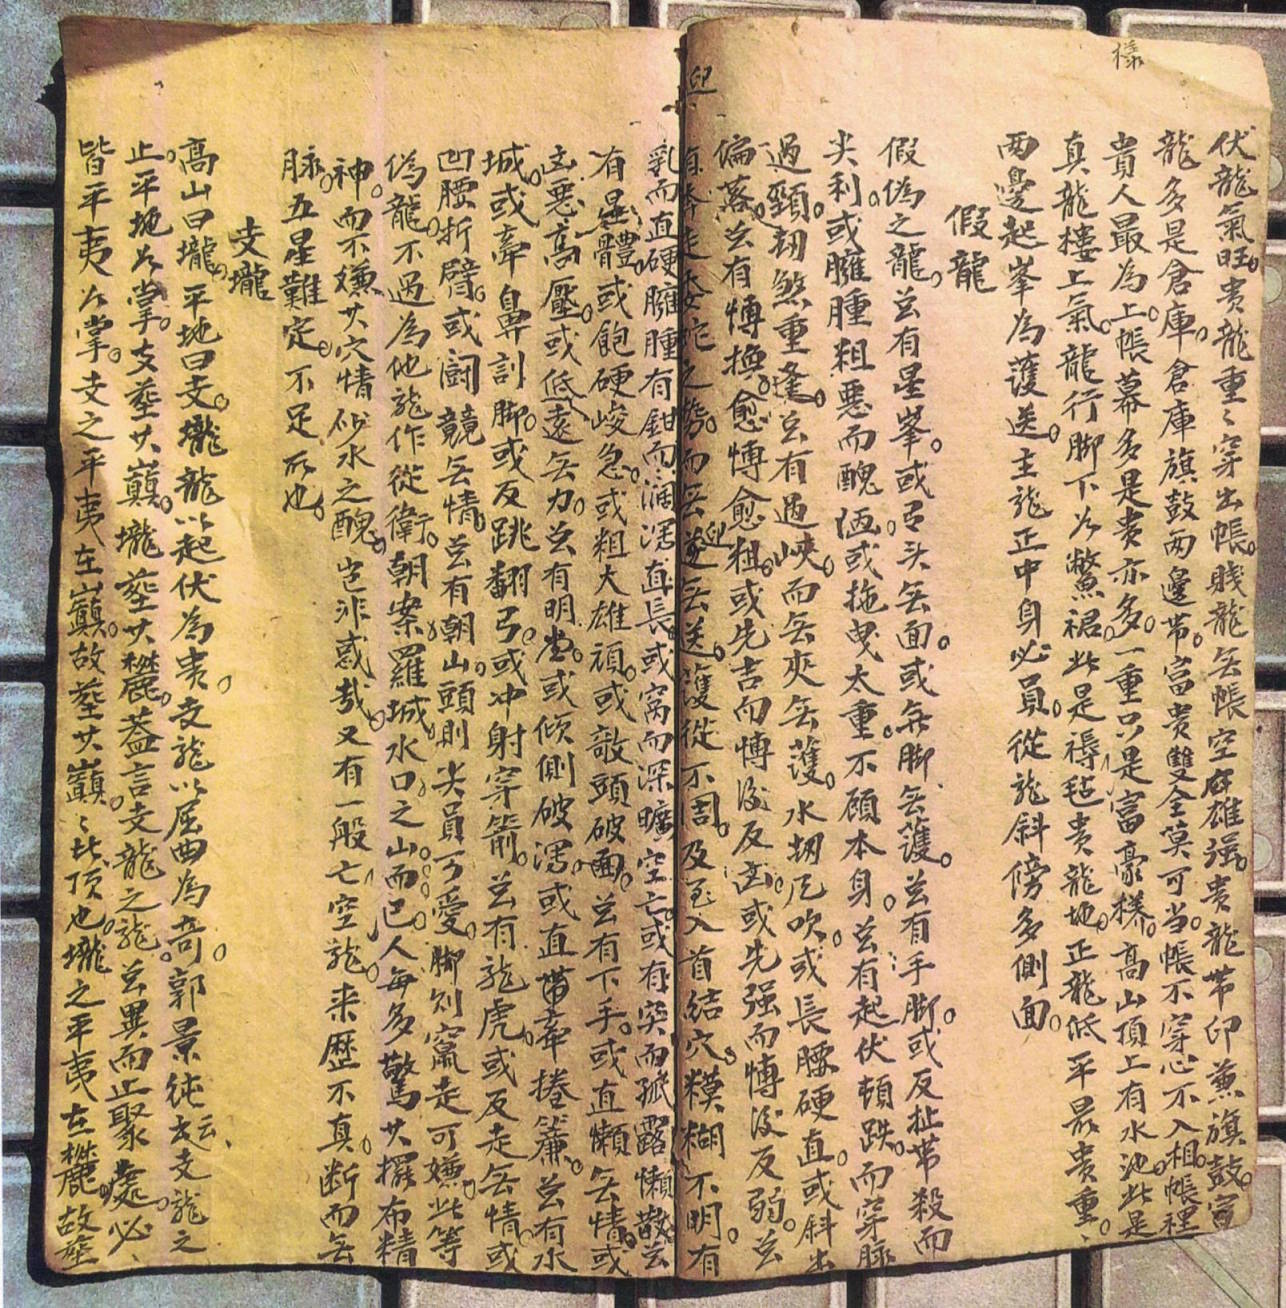 樣
伏龍氣旺。貴龍重〻穿出帳。賤龍無帳空雄強。貴龍帶印兼旗鼓。富
龍多是倉庫。倉庫旗鼓两邊带。富貴雙全莫可当。帳不穿心不入相。帳裡
貴人最為上。帳幕多是贵亦多。一重只是富豪樣。高山頂上有水池。此是
真龍樓上氣。龍行脚下火鱉裙。此是褥毡贵龍地。正龍低平最贵重、
两邊起峯為護送。主龍正中身必員。從龍斜傍多側面。
假龍
假偽之龍。亦有星峯。或召头無面。或無脚無護。亦有手脚。或反扯带殺而
尖利。或臃腫粗悪而醜洒。或拖曳太重。不顧本身。亦有起伏頓跌。而穿脉
過頸。刼煞重逢。亦有過峽。而無夾無護。水刼风吹。或長腰硬直。或斜出
偏落。亦有博换。愈博愈粗。或先吉而博後反凶。或先强而博後反弱。亦
有奔走之勢。而無迎無送。護從不周。及至入首結穴。糢糊不明。有
乳而直硬臃腫。有鉗而濶深直長。或窝而深曠空亡。或有突而孤露懶散。亦
有星體。或飽硬峻急。或粗大雄頑。或敧頭破面。亦有下手。或直懶無情。或
凶悪高壓。或低遠無力。亦有明堂。或倾側破泻。或直帶牽捲簾。亦有水
城。或牽鼻割脚。或反跳翻弓。或冲射穿箭。亦有龍虎。或反走無情。或
凹腰折臂。或鬪競無情。亦有朝山。頭則尖員可愛。脚则竄走可嫌。此等
偽龍。不過為他龍作從衛。朝案羅城。水口之山而已。人每多驚其擺布精
神。而不嫌其穴情砂水之醜。岂非惑哉。又有一般亡空龍。来歷不真。断而無
脉。五星難定。不足所也。
支壠
高山曰壠。平地曰支。壠龍以起伏為贵。支龍以屈曲為奇。郭景純云、支龍之
止。平地為掌。支塟其巔。壠塟其麓。葢言支龍之龍。亦異而止聚處。必
皆平夷為掌。支之平夷在巔。故塟其巔〻此頂也。壠之平夷在麓。故塟